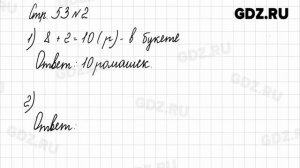 GDZ.RU
Стр. 53 № 2
1) 8 + 2 = 10 (р) - в букете
Ответ: 10 ромашек.
2)
Ответ: